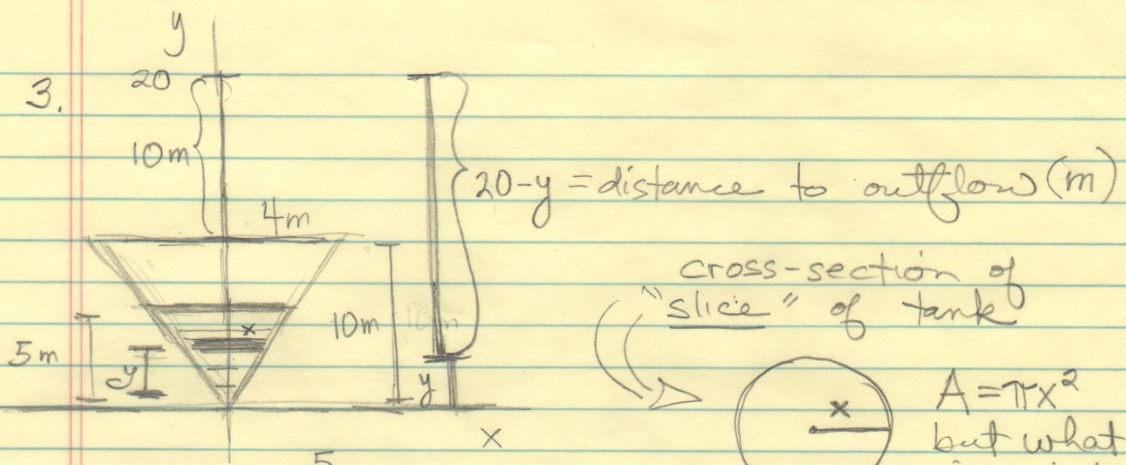 y
3.
20
10m
20-y = distance to outflow (m)
4m
cross-section of
"slice" of tank
x
10m
5m
y
y
x
A = πx²
x
but what
5